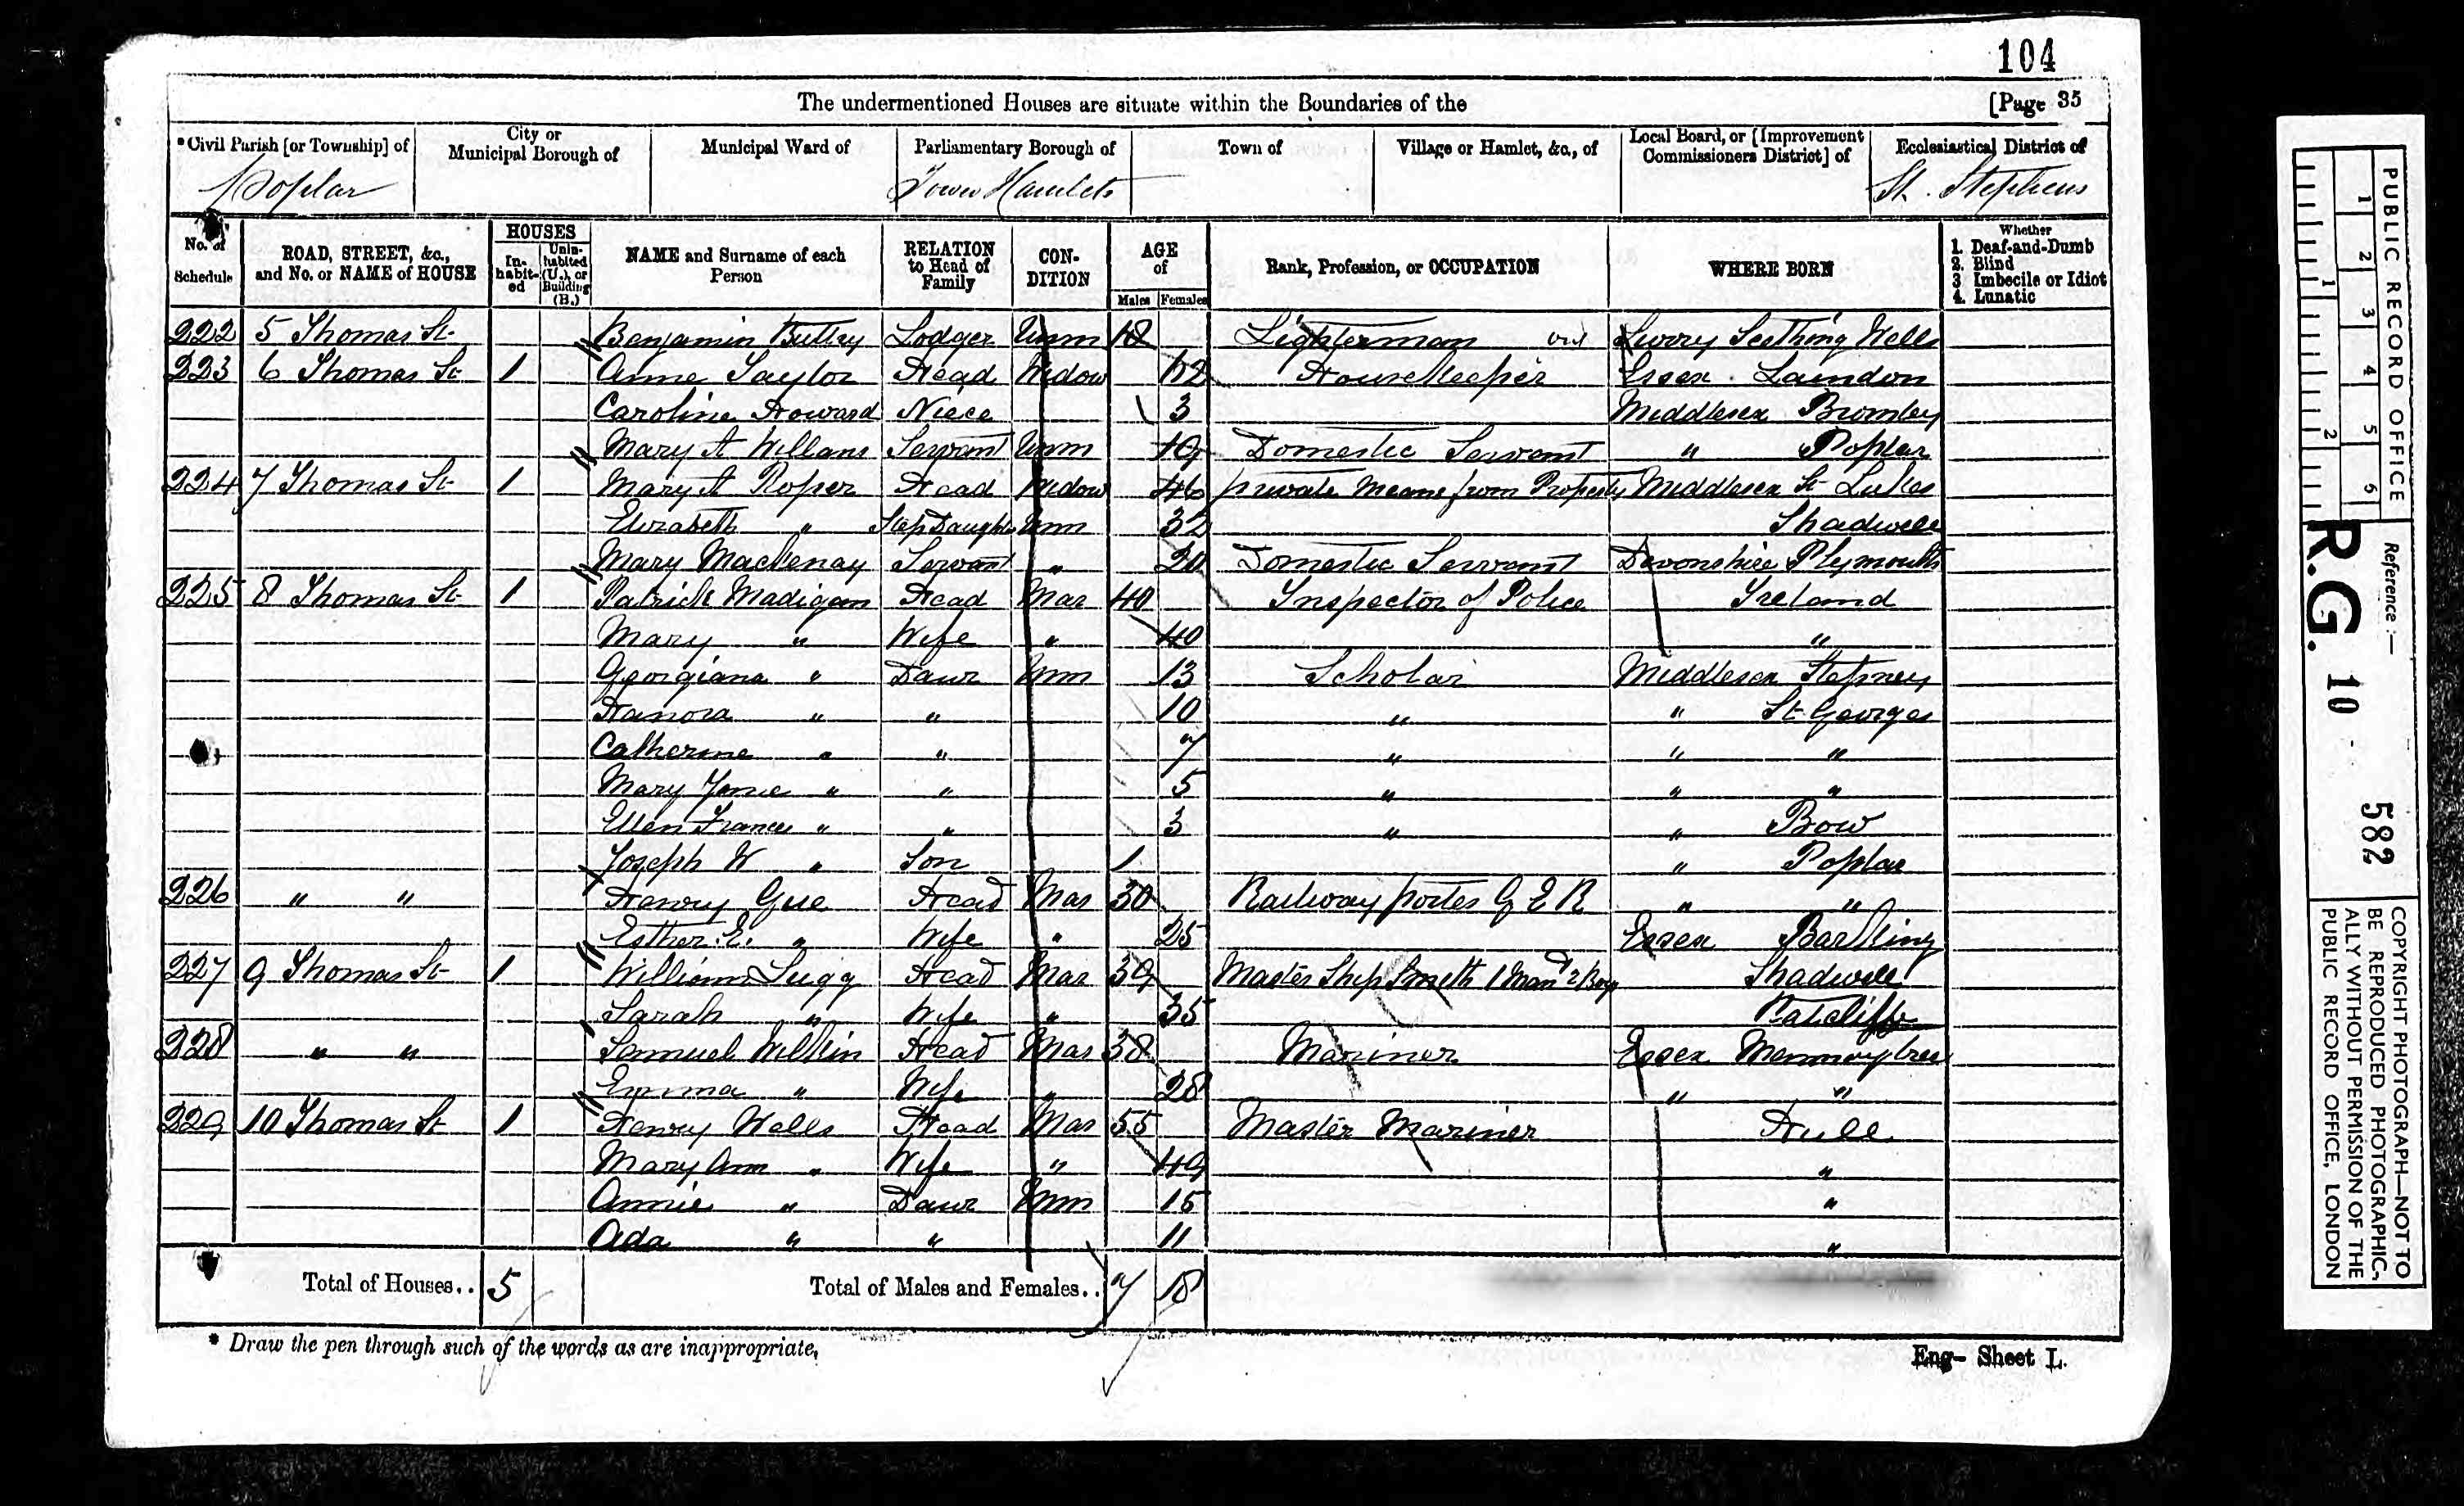 104
The undermentioned Houses are situate within the Boundaries of the [Page 35
*Civil Parish [or Township] of City or Municipal Borough of Municipal Ward of Parliamentary Borough of Town of Village or Hamlet, &c., of Local Board, or [Improvement Commissioners District] of Ecclesiastical District of
Poplar Tower Hamlets St. Stephens
No. of Schedule ROAD, STREET, &c., and No. or NAME of HOUSE HOUSES Inhabited Uninhabited (U.), or Building (B.) NAME and Surname of each Person RELATION to Head of Family CONDITION AGE of Males Females Rank, Profession, or OCCUPATION WHERE BORN Whether 1. Deaf-and-Dumb 2. Blind 3. Imbecile or Idiot 4. Lunatic
222 5 Thomas St Benjamin Lodger Unm 18 Lighterman Surry Seething Wells
223 6 Thomas St 1 Anne Taylor Head Widow Housekeeper Essex Laindon
Caroline Howard Niece 3 Middlesex Bromley
Mary A Willans Servant Unm 19 Domestic Servant " Poplar
224 7 Thomas St 1 Mary A Roper Head Widow 46 private Means from Property Middlesex St Lukes
Elizabeth " Step Daughter Unm 32 Shadwell
Mary Servant " 20 Domestic Servant Devonshire Plymouth
225 8 Thomas St 1 Patrick Madigan Head Mar 40 Inspector of Police Ireland
Mary " Wife " 40 "
Georgiana " Daur Unm 13 Scholar Middlesex Stepney
Hanora " " 10 " " St Georges
Catherine " " 7 " " "
Mary Jane " " 5 " " "
Ellen Frances " " 3 " " Bow
Joseph W " Son 1 " Poplar
226 " " Henry Gue Head Mar 30 Railway porter G E R " "
Esther E. " Wife " 25 Essex Barking
227 9 Thomas St 1 William Sugg Head Mar 39 Master Ship Smith 1 Man 2 Boys Shadwell
Sarah " Wife " 35 Ratcliffe
228 " " Samuel Wilkin Head Mar 38 Mariner Essex
Emma " Wife " 28 " "
229 10 Thomas St 1 Henry Wells Head Mar 55 Master Mariner Hull
Mary Ann " Wife " 49 "
Annie " Daur Unm 15 "
Ada " " 11 "
Total of Houses.. 5 Total of Males and Females.. 7 18
* Draw the pen through such of the words as are inappropriate.
Eng- Sheet L.
PUBLIC RECORD OFFICE
1 2 3 4 5 6
1 2
Reference :-
R.G. 10 582
COPYRIGHT PHOTOGRAPH—NOT TO
BE REPRODUCED PHOTOGRAPHIC-
ALLY WITHOUT PERMISSION OF THE
PUBLIC RECORD OFFICE, LONDON